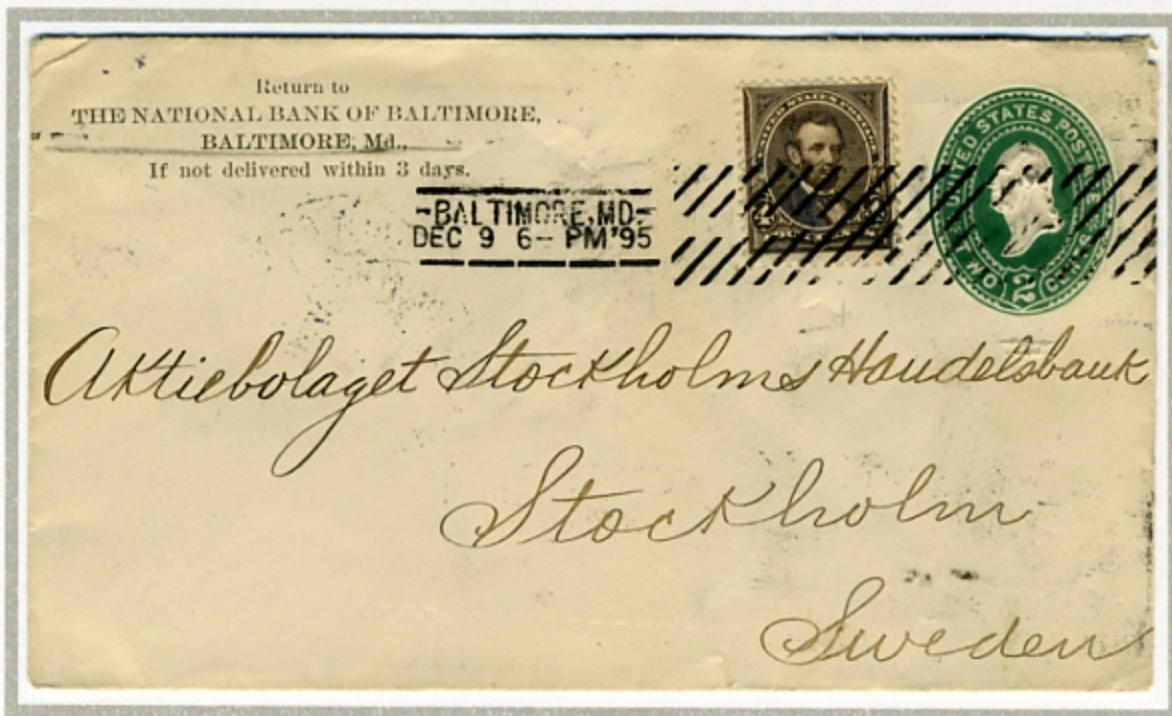 Return to
THE NATIONAL BANK OF BALTIMORE,
BALTIMORE, Md.,
If not delivered within 3 days.
-BALTIMORE, MD-
DEC 9 6- PM '95
UNITED STATES POSTAGE
UNITED STATES POSTAGE
TWO 2 CENTS
Aktiebolaget Stockholms Handelsbank
Stockholm
Sweden